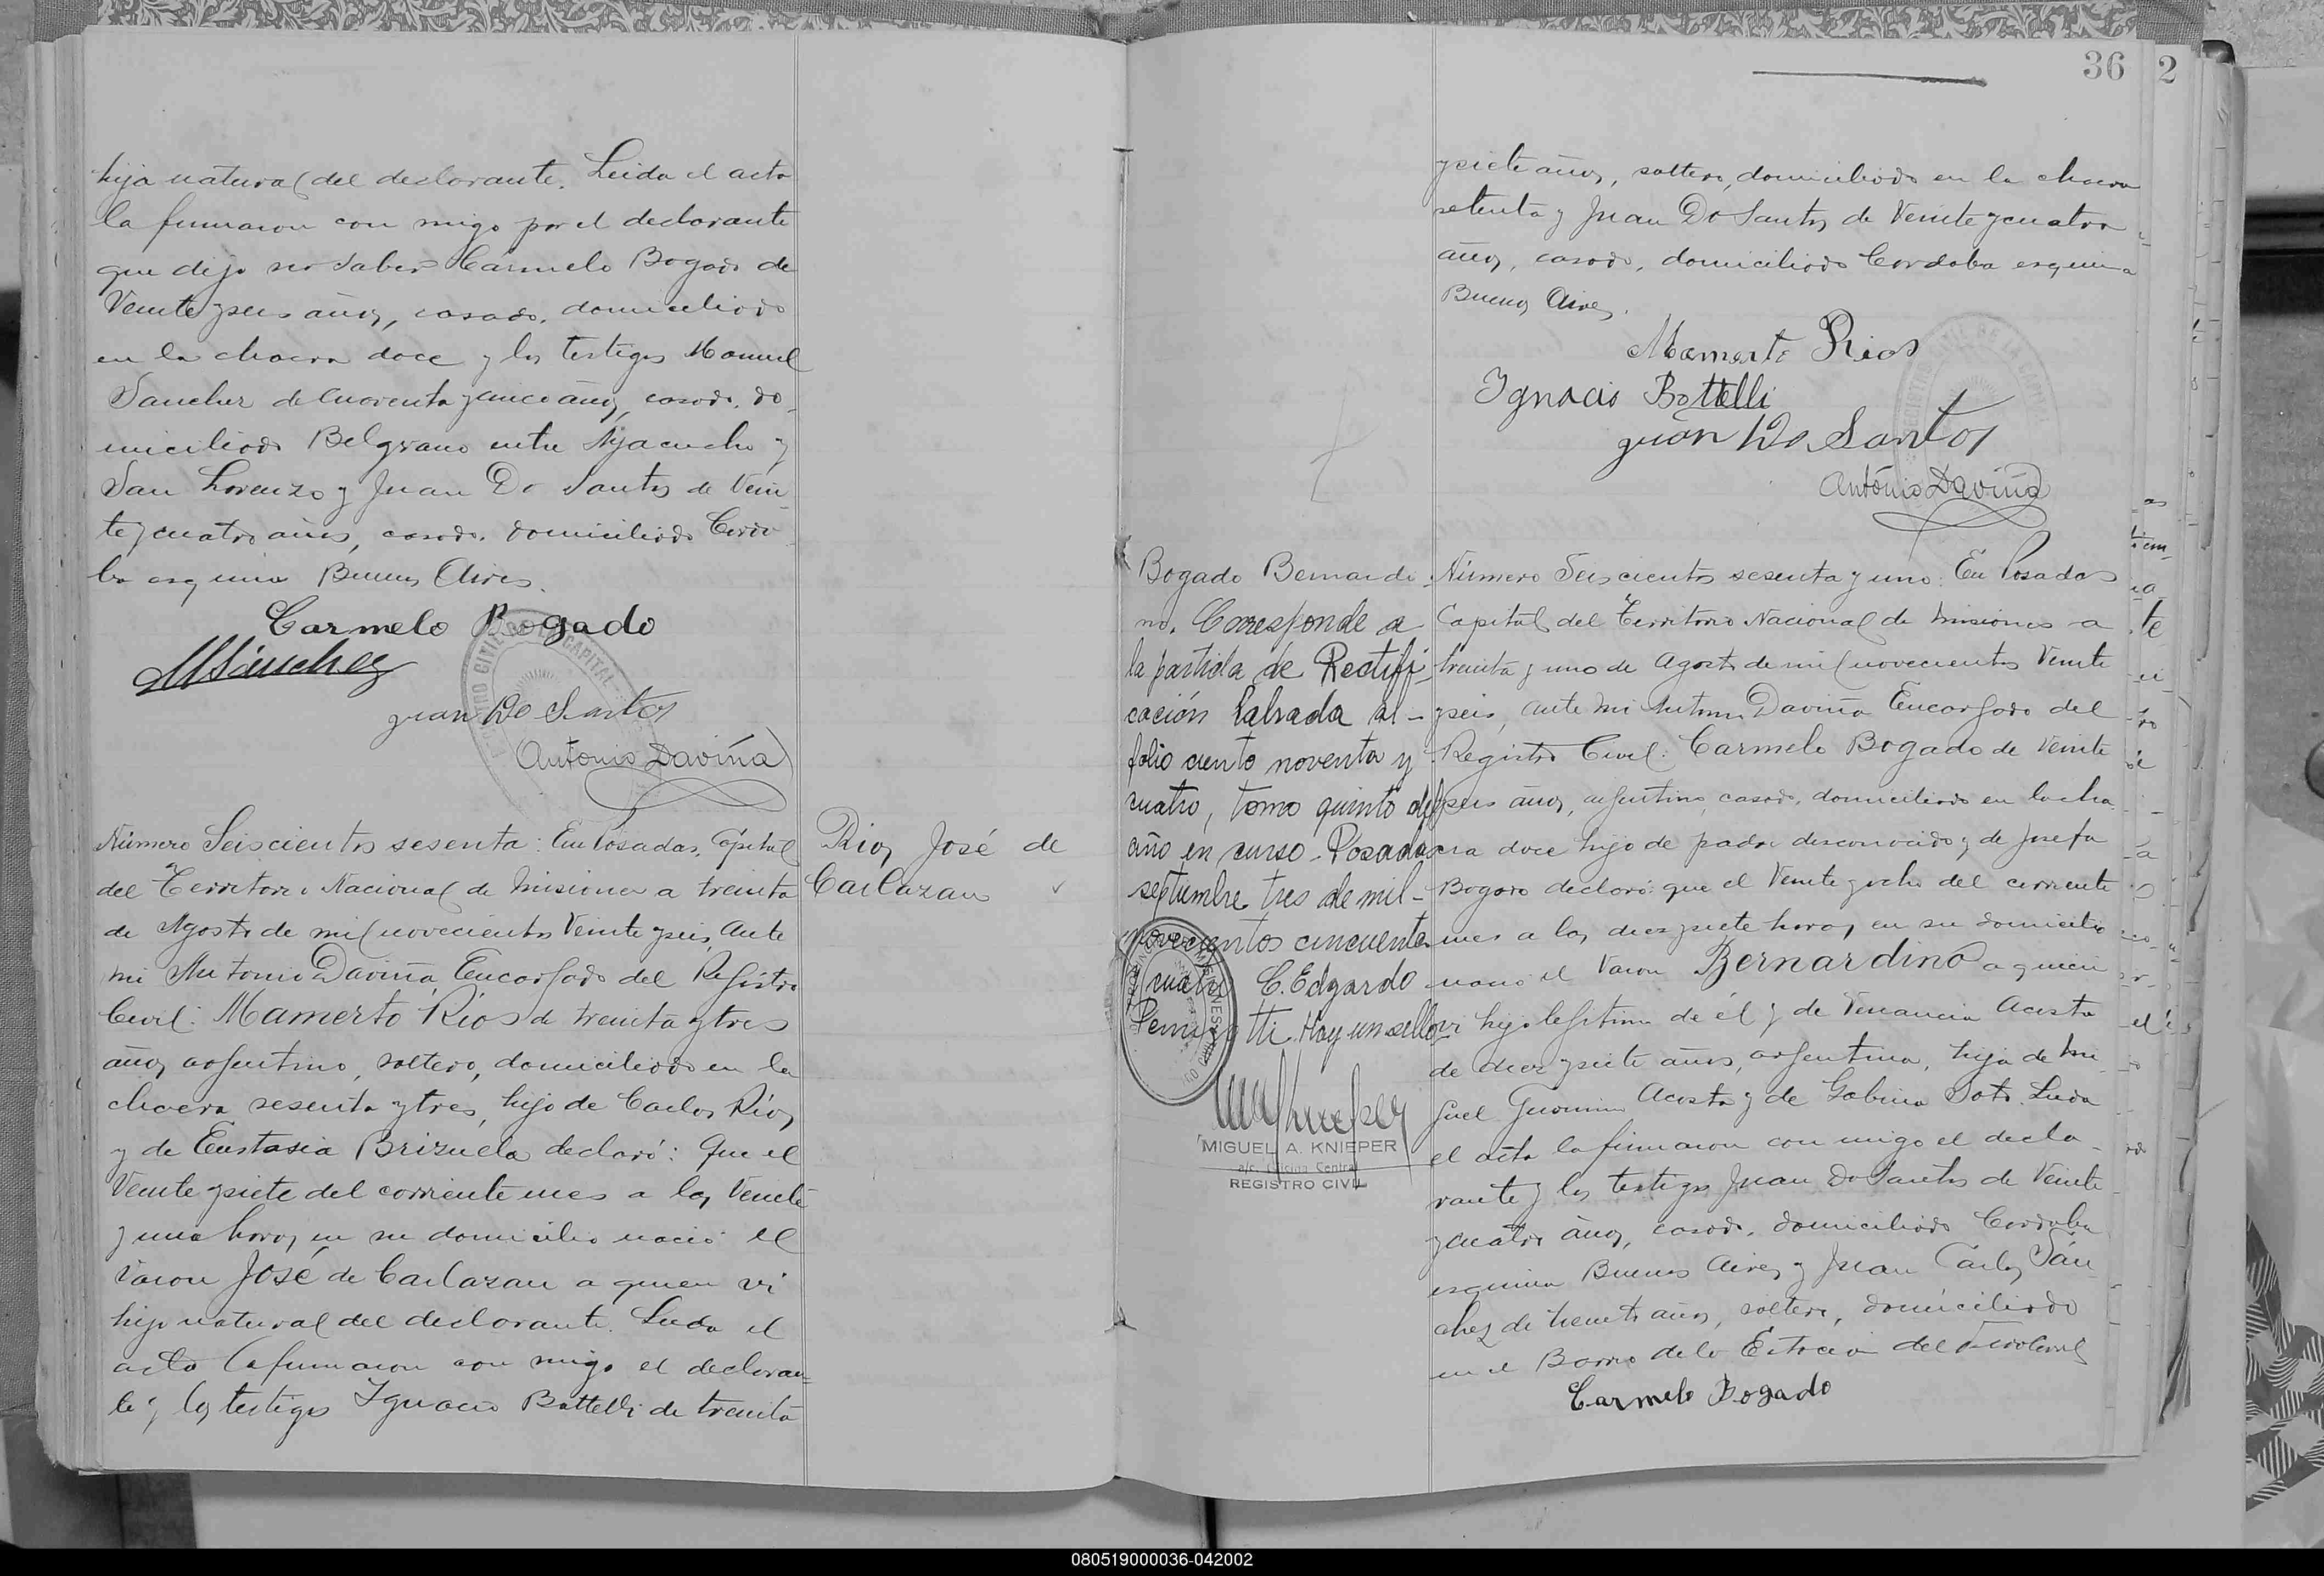 hija natural del declarante. Leida el acta
la firmaron con migo por el declarante
que dijo no saber Carmelo Bogado de
Veinte y seis años, casado, domiciliado
en la chacra doce y los testigos Manuel
Sanchez de cuarenta y cinco años, casado, do
miciliado Belgrano entre Ayacucho y
San Lorenzo y Juan Do Santos de Vein
te y cuatro años, casado, domiciliado Cordo
ba esquina Buenos Aires.
Carmelo Bogado
MSánchez
Juan Do Santos
Antonio Daviña
REGISTRO CIVIL DE LA CAPITAL
Número Seiscientos sesenta: En Posadas, Capital
del Territorio Nacional de Misiones a treinta
de Agosto de mil novecientos Veinte y seis, ante
mi Antonio Daviña Encargado del Registro
Civil: Mamerto Ríos de treinta y tres
años argentino, soltero, domiciliado en la
chacra sesenta y tres, hijo de Carlos Ríos
y de Eustasia Brizuela declaró: Que el
Veinte y siete del corriente mes a las Veinte
y una horas en su domicilio nació el
Varon José de Carlazan a quien vi
hijo natural del declarante. Leida el
acta la firmaron con migo el declaran
te y los testigos Ignacio Bottelli de treinta
Rios José de
Carlazan
36
2
y siete años, soltero, domiciliado en la chacra
setenta y Juan Do Santos de Veinte y cuatro
años, casado, domiciliado Cordoba esquina
Buenos Aires.
Mamerto Rios
Ignacio Bottelli
Juan Do Santos
Antonio Daviña
Bogado Bernardi
no. Corresponde a
la partida de Rectifi
cación labrada al
folio ciento noventa y
cuatro, tomo quinto del
año en curso. Posadas
septiembre tres de mil
novecientos cincuenta
cuatro C. Edgardo
Hay un sello
MIGUEL A. KNIEPER
a/c. Oficina Central
REGISTRO CIVIL
Número Seiscientos sesenta y uno: En Posadas
Capital del Territorio Nacional de Misiones a
treinta y uno de Agosto de mil novecientos Veinte
y seis, ante mi Antonio Daviña Encargado del
Registro Civil: Carmelo Bogado de Veinte
y seis años, argentino, casado, domiciliado en la cha
cra doce hijo de padre desconocido y de Josefa
Bogado declaró: que el Veinte y ocho del corriente
mes a las diez y siete horas en su domicilio
nació el Varon Bernardino a quien
vi hijo legitimo de él y de Venancia Acosta
de diez y siete años, argentina, hija de Mi
guel Geronimo Acosta y de Gabina Soto. Leida
el acta la firmaron con migo el decla
rante y los testigos Juan Do Santos de Veinte
y cuatro años, casado, domiciliado Cordoba
esquina Buenos Aires y Juan Carlos Sán
chez de treinta años, soltero, domiciliado
en el Barrio de la Estación del Ferrocarril
Carmelo Bogado
080519000036-042002